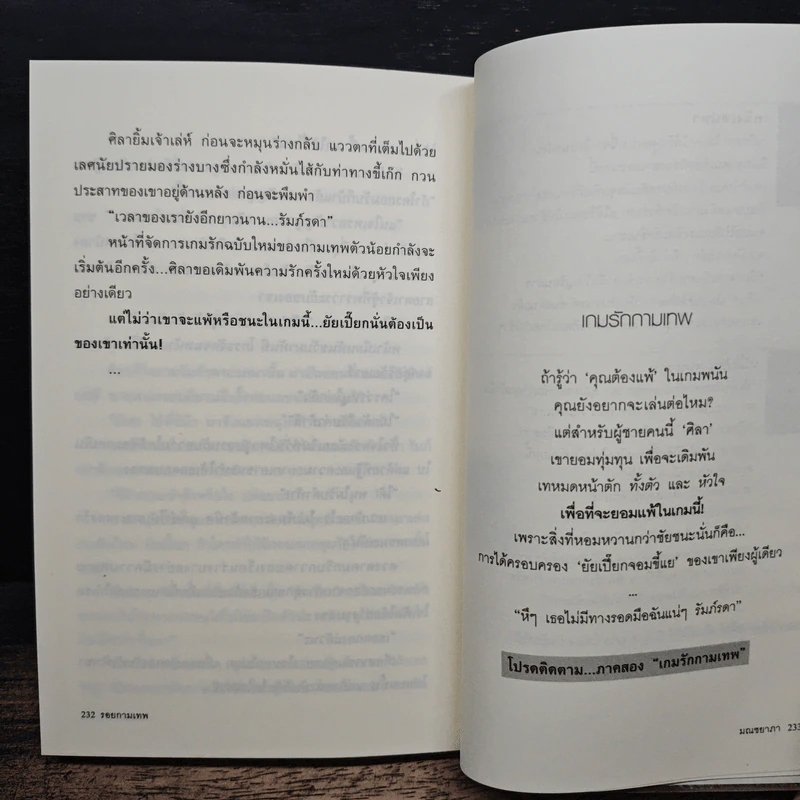 ศิลายิ้มเจ้าเล่ห์ ก่อนจะหมุนร่างกลับ แววตาที่เต็มไปด้วย
เลศนัยปรายมองร่างบางซึ่งกำลังหมั่นไส้กับท่าทางขี้เก๊ก กวน
ประสาทของเขาอยู่ด้านหลัง ก่อนจะพึมพำ
“เวลาของเรายังอีกยาวนาน...รัมภ์รดา”
หน้าที่จัดการเกมรักฉบับใหม่ของกามเทพตัวน้อยกำลังจะ
เริ่มต้นอีกครั้ง...ศิลาขอเดิมพันความรักครั้งใหม่ด้วยหัวใจเพียง
อย่างเดียว
แต่ไม่ว่าเขาจะแพ้หรือชนะในเกมนี้...ยัยเปี๊ยกนั่นต้องเป็น
ของเขาเท่านั้น!
...
232 รอยกามเทพ
เกมรักกามเทพ
ถ้ารู้ว่า ‘คุณต้องแพ้’ ในเกมพนัน
คุณยังอยากจะเล่นต่อไหม?
แต่สำหรับผู้ชายคนนี้ ‘ศิลา’
เขายอมทุ่มทุน เพื่อจะเดิมพัน
เทหมดหน้าตัก ทั้งตัว และ หัวใจ
เพื่อที่จะยอมแพ้ในเกมนี้!
เพราะสิ่งที่หอมหวานกว่าชัยชนะนั่นก็คือ...
การได้ครอบครอง ‘ยัยเปี๊ยกจอมขี้แย’ ของเขาเพียงผู้เดียว
...
“หึๆ เธอไม่มีทางรอดมือฉันแน่ๆ รัมภ์รดา”
โปรดติดตาม...ภาคสอง “เกมรักกามเทพ”
มณชยาภา 233